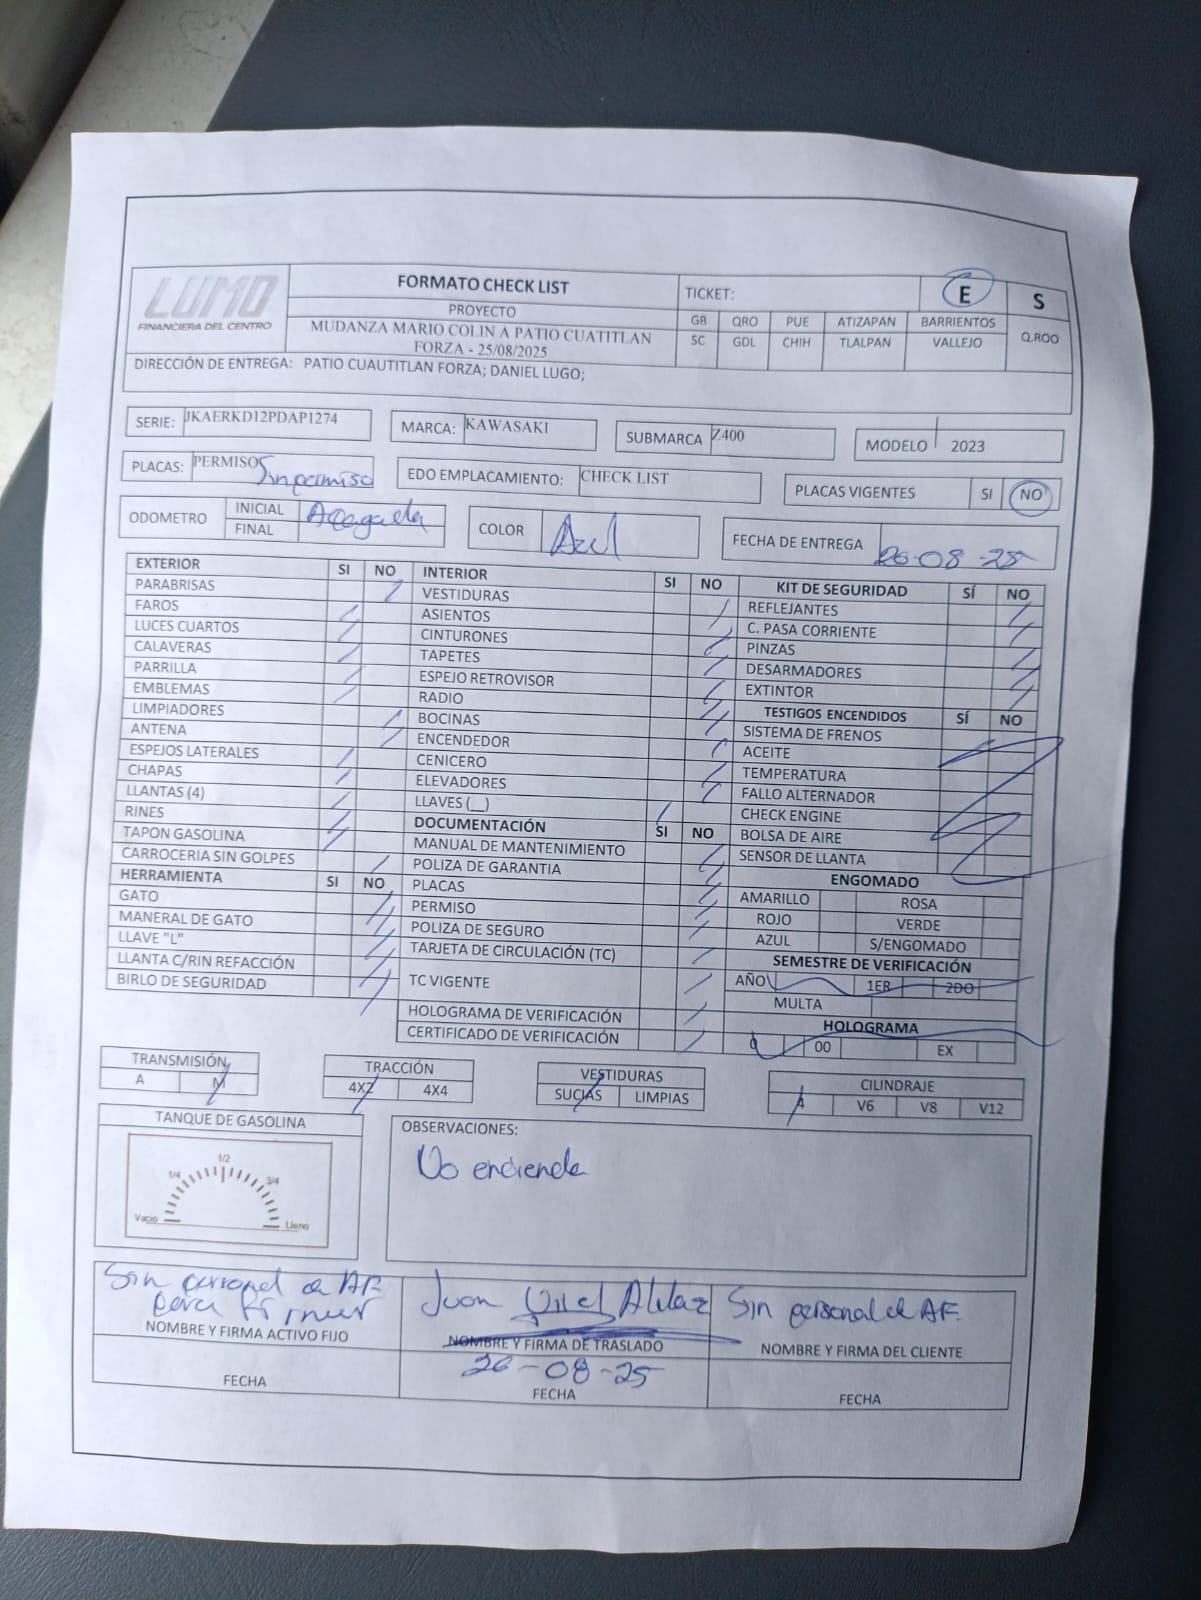 LUMO
FINANCIERA DEL CENTRO
FORMATO CHECK LIST
PROYECTO
MUDANZA MARIO COLIN A PATIO CUATITLAN
FORZA - 25/08/2025
TICKET: E S
GB QRO PUE ATIZAPAN BARRIENTOS Q.ROO
SC GDL CHIH TLALPAN VALLEJO
DIRECCIÓN DE ENTREGA: PATIO CUAUTITLAN FORZA; DANIEL LUGO;
SERIE: JKAERKD12PDAP1274 MARCA: KAWASAKI SUBMARCA Z400 MODELO 2023
PLACAS: PERMISO Sin permiso EDO EMPLACAMIENTO: CHECK LIST PLACAS VIGENTES SI NO
ODOMETRO INICIAL Apagada COLOR Azul FECHA DE ENTREGA 26-08-25
FINAL
EXTERIOR SI NO
PARABRISAS
FAROS
LUCES CUARTOS
CALAVERAS
PARRILLA
EMBLEMAS
LIMPIADORES
ANTENA
ESPEJOS LATERALES
CHAPAS
LLANTAS (4)
RINES
TAPON GASOLINA
CARROCERIA SIN GOLPES
HERRAMIENTA SI NO
GATO
MANERAL DE GATO
LLAVE "L"
LLANTA C/RIN REFACCIÓN
BIRLO DE SEGURIDAD
INTERIOR SI NO
VESTIDURAS
ASIENTOS
CINTURONES
TAPETES
ESPEJO RETROVISOR
RADIO
BOCINAS
ENCENDEDOR
CENICERO
ELEVADORES
LLAVES (__)
DOCUMENTACIÓN SI NO
MANUAL DE MANTENIMIENTO
POLIZA DE GARANTIA
PLACAS
PERMISO
POLIZA DE SEGURO
TARJETA DE CIRCULACIÓN (TC)
TC VIGENTE
HOLOGRAMA DE VERIFICACIÓN
CERTIFICADO DE VERIFICACIÓN
KIT DE SEGURIDAD SÍ NO
REFLEJANTES
C. PASA CORRIENTE
PINZAS
DESARMADORES
EXTINTOR
TESTIGOS ENCENDIDOS SÍ NO
SISTEMA DE FRENOS
ACEITE
TEMPERATURA
FALLO ALTERNADOR
CHECK ENGINE
BOLSA DE AIRE
SENSOR DE LLANTA
ENGOMADO
AMARILLO ROSA
ROJO VERDE
AZUL S/ENGOMADO
SEMESTRE DE VERIFICACIÓN
AÑO 1ER 2DO
MULTA
HOLOGRAMA
0 00 EX
TRANSMISIÓN
A M
TRACCIÓN
4X2 4X4
VESTIDURAS
SUCIAS LIMPIAS
CILINDRAJE
4 V6 V8 V12
TANQUE DE GASOLINA
1/2
1/4 3/4
Vacio Lleno
OBSERVACIONES:
No enciende
Sin personal de AF
para firmar
NOMBRE Y FIRMA ACTIVO FIJO
FECHA
Juan
NOMBRE Y FIRMA DE TRASLADO
26-08-25
FECHA
Sin personal de AF.
NOMBRE Y FIRMA DEL CLIENTE
FECHA